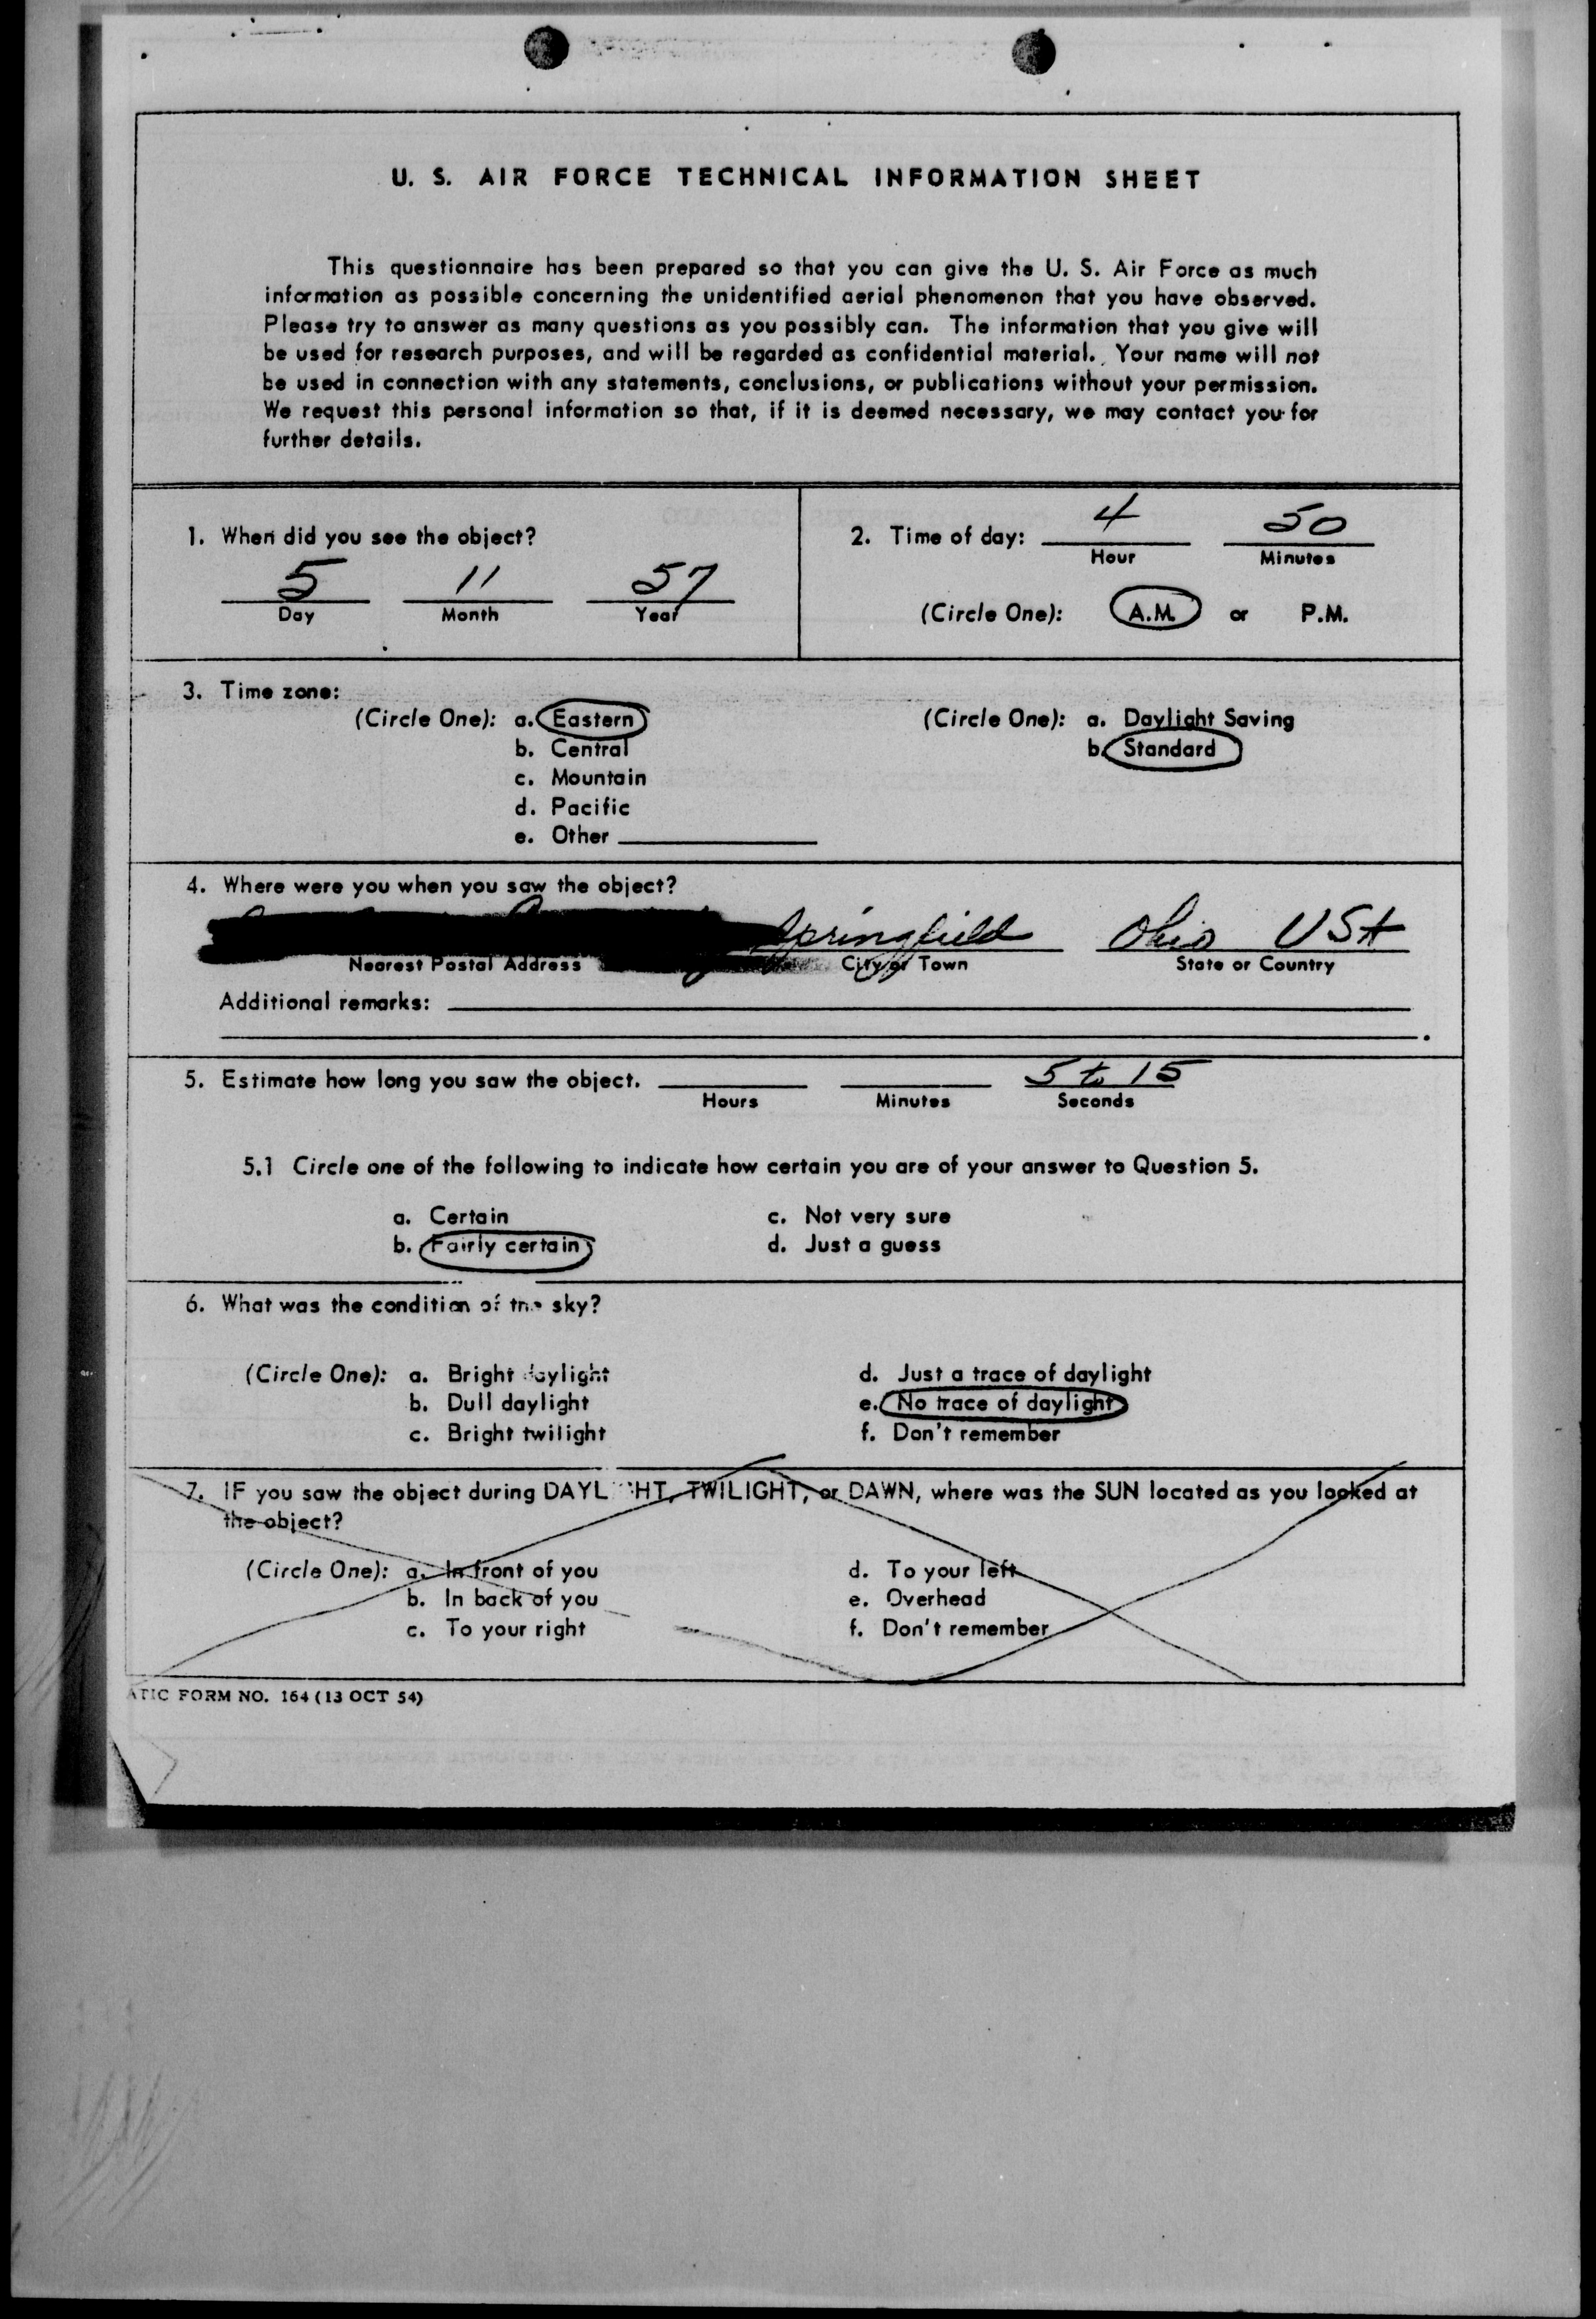 U. S. AIR FORCE TECHNICAL INFORMATION SHEET
This questionnaire has been prepared so that you can give the U. S. Air Force as much
information as possible concerning the unidentified aerial phenomenon that you have observed.
Please try to answer as many questions as you possibly can. The information that you give will
be used for research purposes, and will be regarded as confidential material. Your name will not
be used in connection with any statements, conclusions, or publications without your permission.
We request this personal information so that, if it is deemed necessary, we may contact you for
further details.
1. When did you see the object?
5 11 57
Day Month Year
2. Time of day: 4 50
Hour Minutes
(Circle One): A.M. or P.M.
3. Time zone:
(Circle One): a. Eastern
b. Central
c. Mountain
d. Pacific
e. Other
(Circle One): a. Daylight Saving
b. Standard
4. Where were you when you saw the object?
Springfield Ohio USA
Nearest Postal Address City or Town State or Country
Additional remarks:
5. Estimate how long you saw the object. 5 to 15
Hours Minutes Seconds
5.1 Circle one of the following to indicate how certain you are of your answer to Question 5.
a. Certain
b. Fairly certain
c. Not very sure
d. Just a guess
6. What was the condition of the sky?
(Circle One): a. Bright daylight
b. Dull daylight
c. Bright twilight
d. Just a trace of daylight
e. No trace of daylight
f. Don't remember
7. IF you saw the object during DAYLIGHT, TWILIGHT, or DAWN, where was the SUN located as you looked at
the object?
(Circle One): a. In front of you
b. In back of you
c. To your right
d. To your left
e. Overhead
f. Don't remember
ATIC FORM NO. 164 (13 OCT 54)